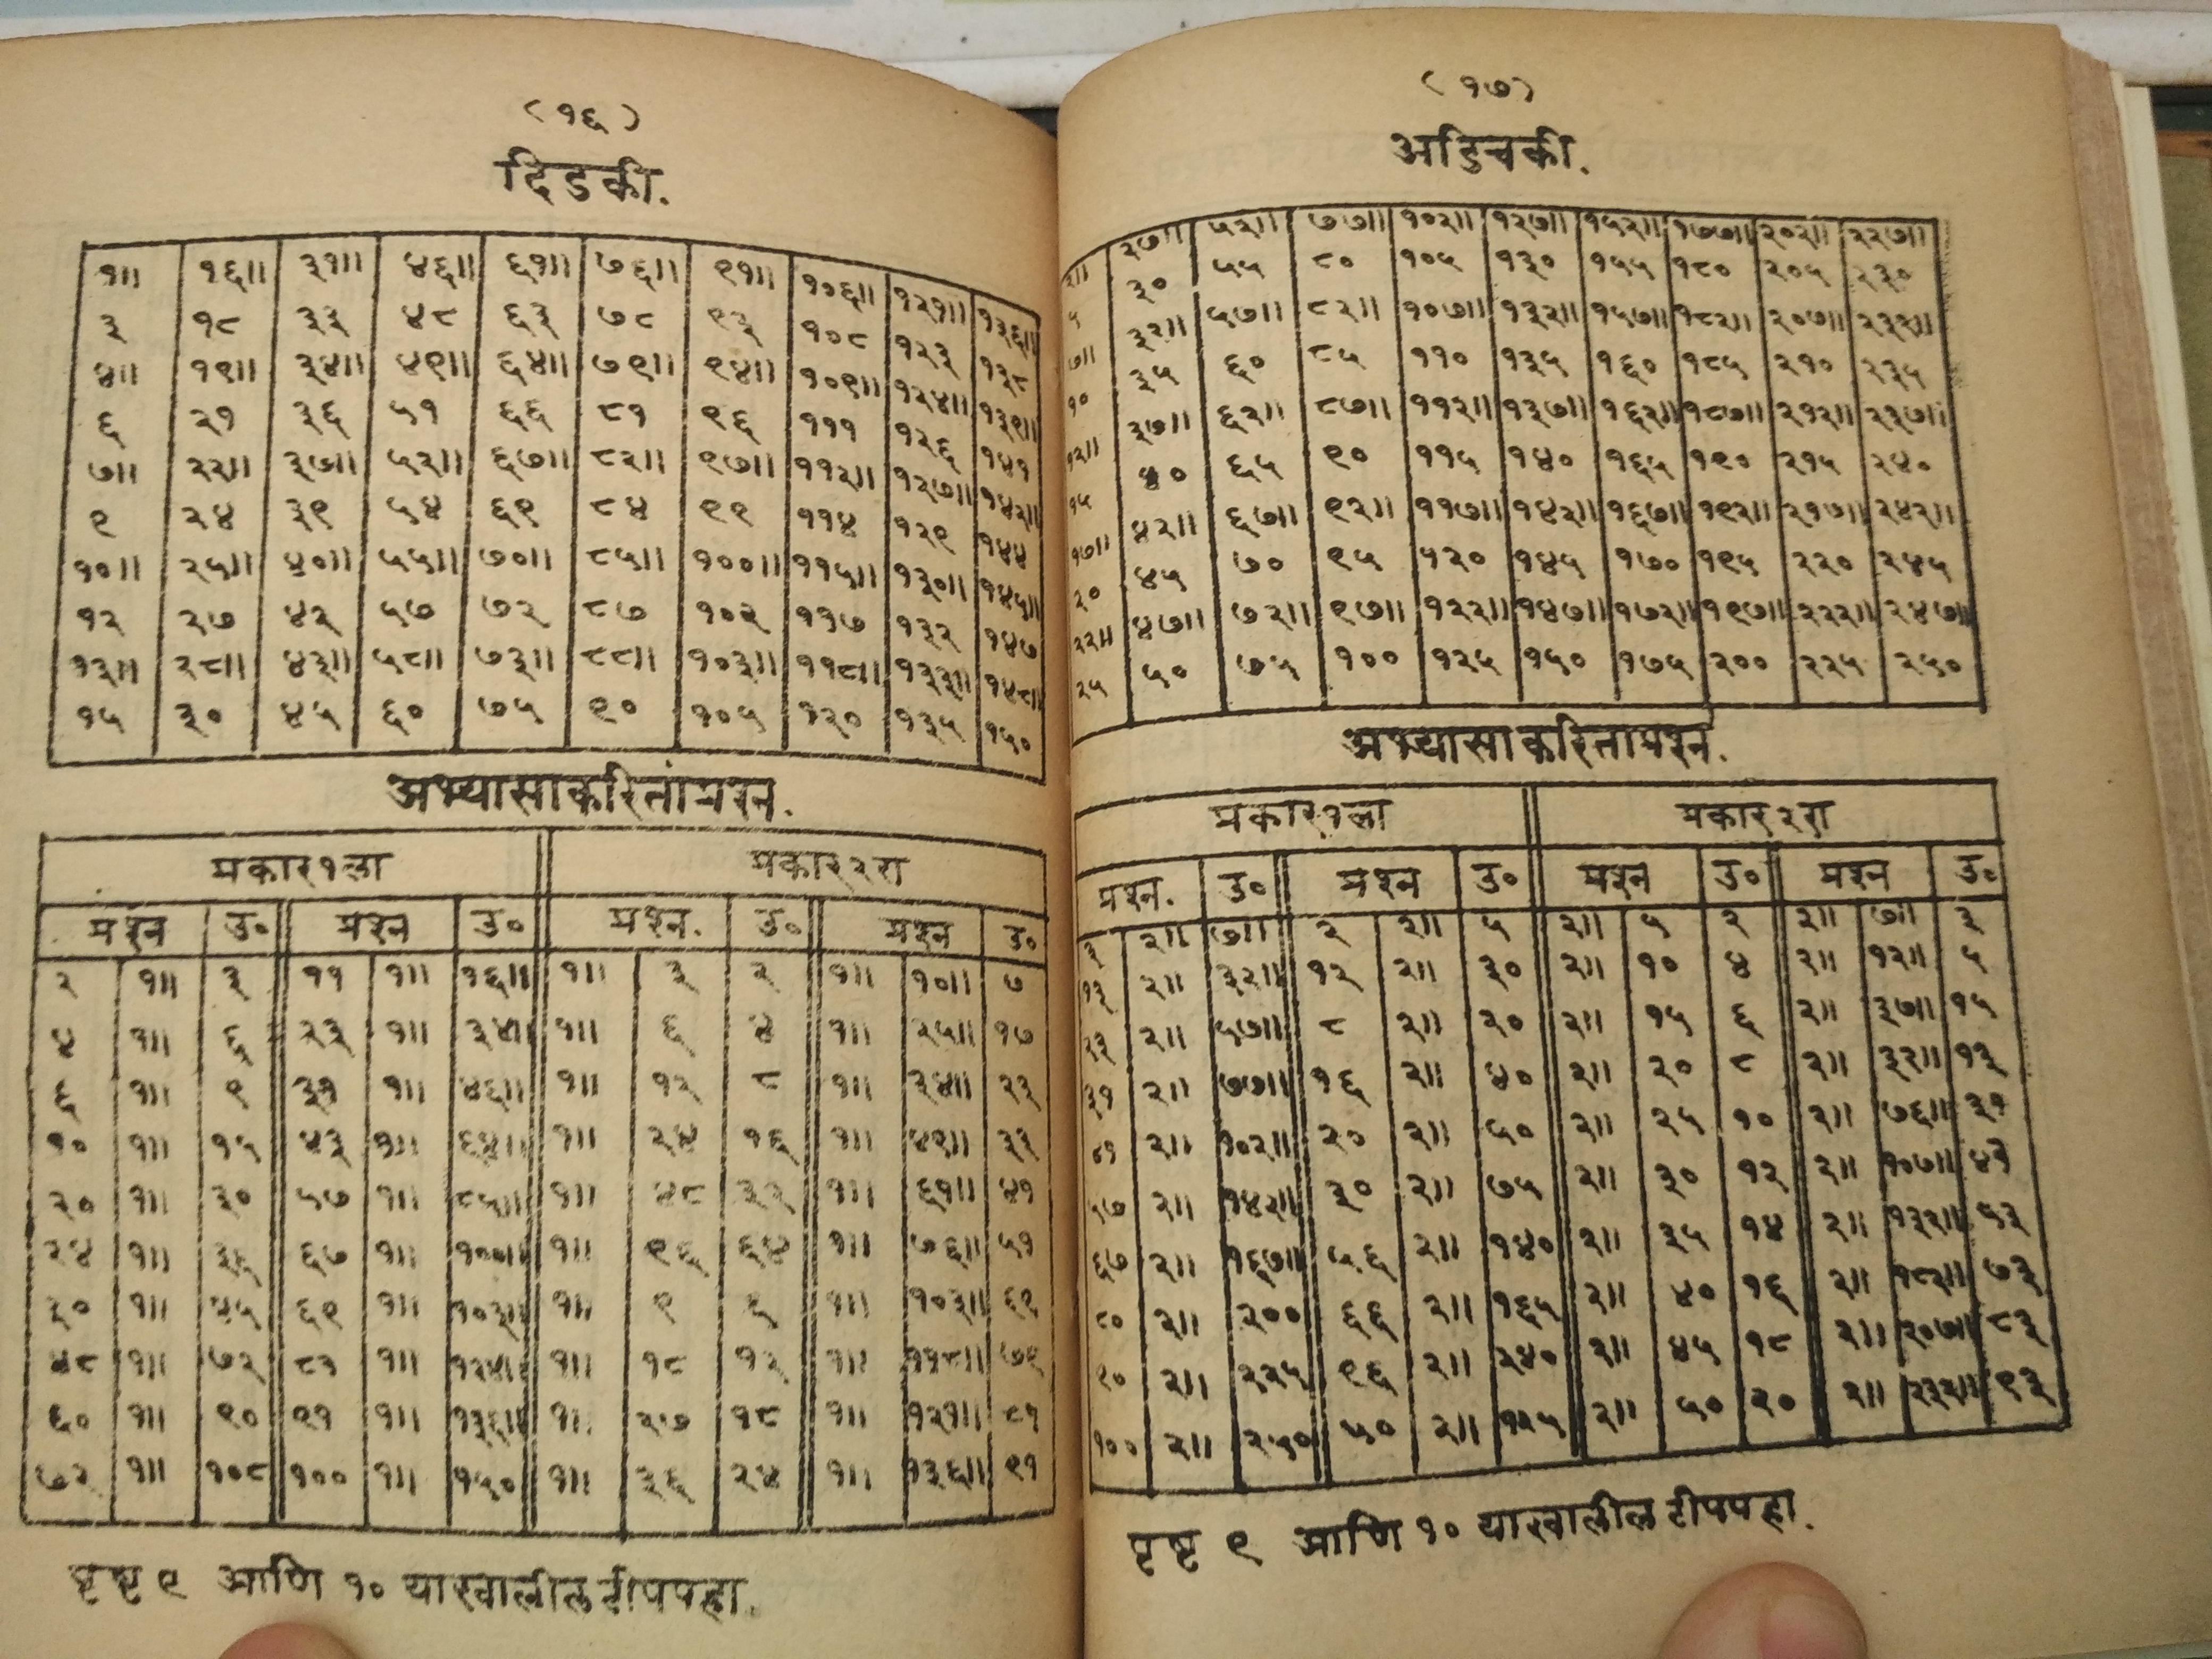 (१६)
दिडकी.
१॥ १६॥ ३१॥ ४६॥ ६१॥ ७६॥ ९१॥ १०६॥ १२१॥ १३६॥
३ १८ ३३ ४८ ६३ ७८ ९३ १०८ १२३ १३८
४॥ १९॥ ३४॥ ४९॥ ६४॥ ७९॥ ९४॥ १०९॥ १२४॥ १३९॥
६ २१ ३६ ५१ ६६ ८१ ९६ १११ १२६ १४१
७॥ २२॥ ३७॥ ५२॥ ६७॥ ८२॥ ९७॥ ११२॥ १२७॥ १४२॥
९ २४ ३९ ५४ ६९ ८४ ९९ ११४ १२९ १४४
१०॥ २५॥ ४०॥ ५५॥ ७०॥ ८५॥ १००॥ ११५॥ १३०॥ १४५॥
१२ २७ ४२ ५७ ७२ ८७ १०२ ११७ १३२ १४७
१३॥ २८॥ ४३॥ ५८॥ ७३॥ ८८॥ १०३॥ ११८॥ १३३॥ १४८॥
१५ ३० ४५ ६० ७५ ९० १०५ १२० १३५ १५०
अभ्यासाकरितांप्रश्न.
प्रकार१ला प्रकार२रा
प्रश्न उ० प्रश्न उ० प्रश्न. उ० प्रश्न उ०
२ १॥ ३ ११ १॥ १६॥ १॥ ३ २ १॥ १०॥ ७
४ १॥ ६ २३ १॥ ३४॥ १॥ ६ ४ १॥ २५॥ १७
६ १॥ ९ ३१ १॥ ४६॥ १॥ १२ ८ १॥ ३४॥ २३
१० १॥ १५ ४३ १॥ ६४॥ १॥ २४ १६ १॥ ४९॥ ३३
२० १॥ ३० ५७ १॥ ८५॥ १॥ ४८ ३२ १॥ ६१॥ ४१
२४ १॥ ३६ ६७ १॥ १००॥ १॥ ९६ ६४ १॥ ७६॥ ५१
३० १॥ ४५ ६९ १॥ १०३॥ १॥ ९ ६ १॥ १०३॥ ६९
४८ १॥ ७२ ८३ १॥ १२४॥ १॥ १८ १२ १॥ ११८॥ ७९
६० १॥ ९० ९१ १॥ १३६॥ १॥ २७ १८ १॥ १२१॥ ८१
७२ १॥ १०८ १०० १॥ १५० १॥ ३६ २४ १॥ १३६॥ ९१
पृष्ट ९ आणि १० याखालील टीपपहा.
(१७)
अडिचकी.
२॥ २७॥ ५२॥ ७७॥ १०२॥ १२७॥ १५२॥ १७७॥ २०२॥ २२७॥
५ ३० ५५ ८० १०५ १३० १५५ १८० २०५ २३०
७॥ ३२॥ ५७॥ ८२॥ १०७॥ १३२॥ १५७॥ १८२॥ २०७॥ २३२॥
१० ३५ ६० ८५ ११० १३५ १६० १८५ २१० २३५
१२॥ ३७॥ ६२॥ ८७॥ ११२॥ १३७॥ १६२॥ १८७॥ २१२॥ २३७॥
१५ ४० ६५ ९० ११५ १४० १६५ १९० २१५ २४०
१७॥ ४२॥ ६७॥ ९२॥ ११७॥ १४२॥ १६७॥ १९२॥ २१७॥ २४२॥
२० ४५ ७० ९५ १२० १४५ १७० १९५ २२० २४५
२२॥ ४७॥ ७२॥ ९७॥ १२२॥ १४७॥ १७२॥ १९७॥ २२२॥ २४७॥
२५ ५० ७५ १०० १२५ १५० १७५ २०० २२५ २५०
अभ्यासाकरिताप्रश्न.
प्रकार१ला प्रकार२रा
प्रश्न. उ० प्रश्न उ० प्रश्न उ० प्रश्न उ०
३ २॥ ७॥ २ २॥ ५ २॥ ५ २ २॥ ७॥ ३
१३ २॥ ३२॥ १२ २॥ ३० २॥ १० ४ २॥ १२॥ ५
२३ २॥ ५७॥ ८ २॥ २० २॥ १५ ६ २॥ ३७॥ १५
३१ २॥ ७७॥ १६ २॥ ४० २॥ २० ८ २॥ ३२॥ १३
४१ २॥ १०२॥ २० २॥ ५० २॥ २५ १० २॥ ७६॥ ३१
५७ २॥ १४२॥ ३० २॥ ७५ २॥ ३० १२ २॥ १०७॥ ४३
६७ २॥ १६७॥ ५६ २॥ १४० २॥ ३५ १४ २॥ १३२॥ ५३
८० २॥ २०० ६६ २॥ १६५ २॥ ४० १६ २॥ १८२॥ ७३
९० २॥ २२५ ९६ २॥ २४० २॥ ४५ १८ २॥ २०७॥ ८३
१०० २॥ २५० ५० २॥ १२५ २॥ ५० २० २॥ २३२॥ ९३
पृष्ट ९ आणि १० याखालील टीपपहा.